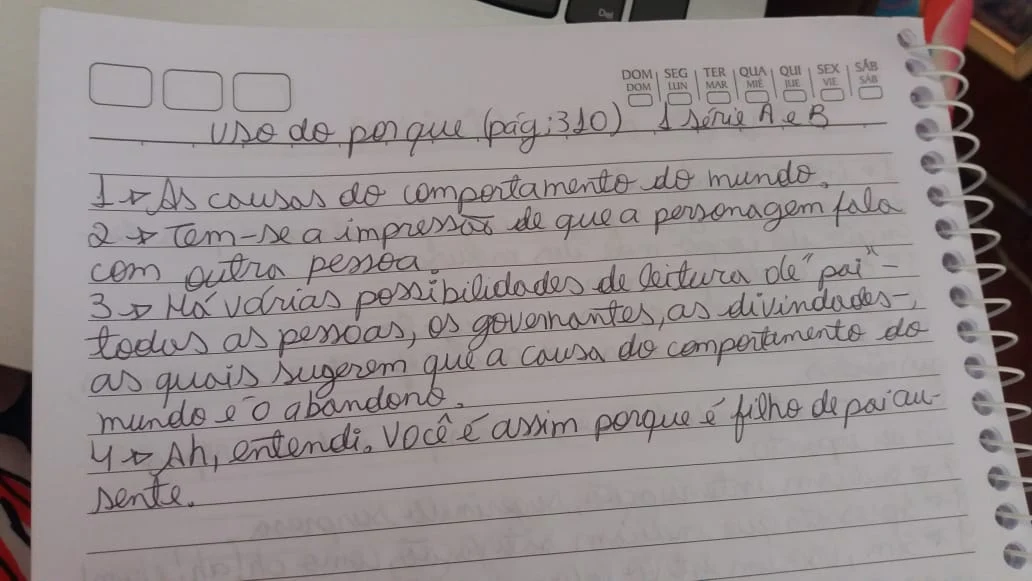 DOM SEG TER QUA QUI SEX SÁB
DOM LUN MAR MIÉ JUE VIE SÁB
Uso do porque (pág:310) 1 série A e B
1 → As causas do comportamento do mundo.
2 → Tem-se a impressão de que a personagem fala
com outra pessoa.
3 → Há várias possibilidades de leitura de "pai" -
todas as pessoas, os governantes, as divindades-,
as quais sugerem que a causa do comportamento do
mundo é o abandono.
4 → Ah, entendi. Você é assim porque é filho de pai au-
sente.